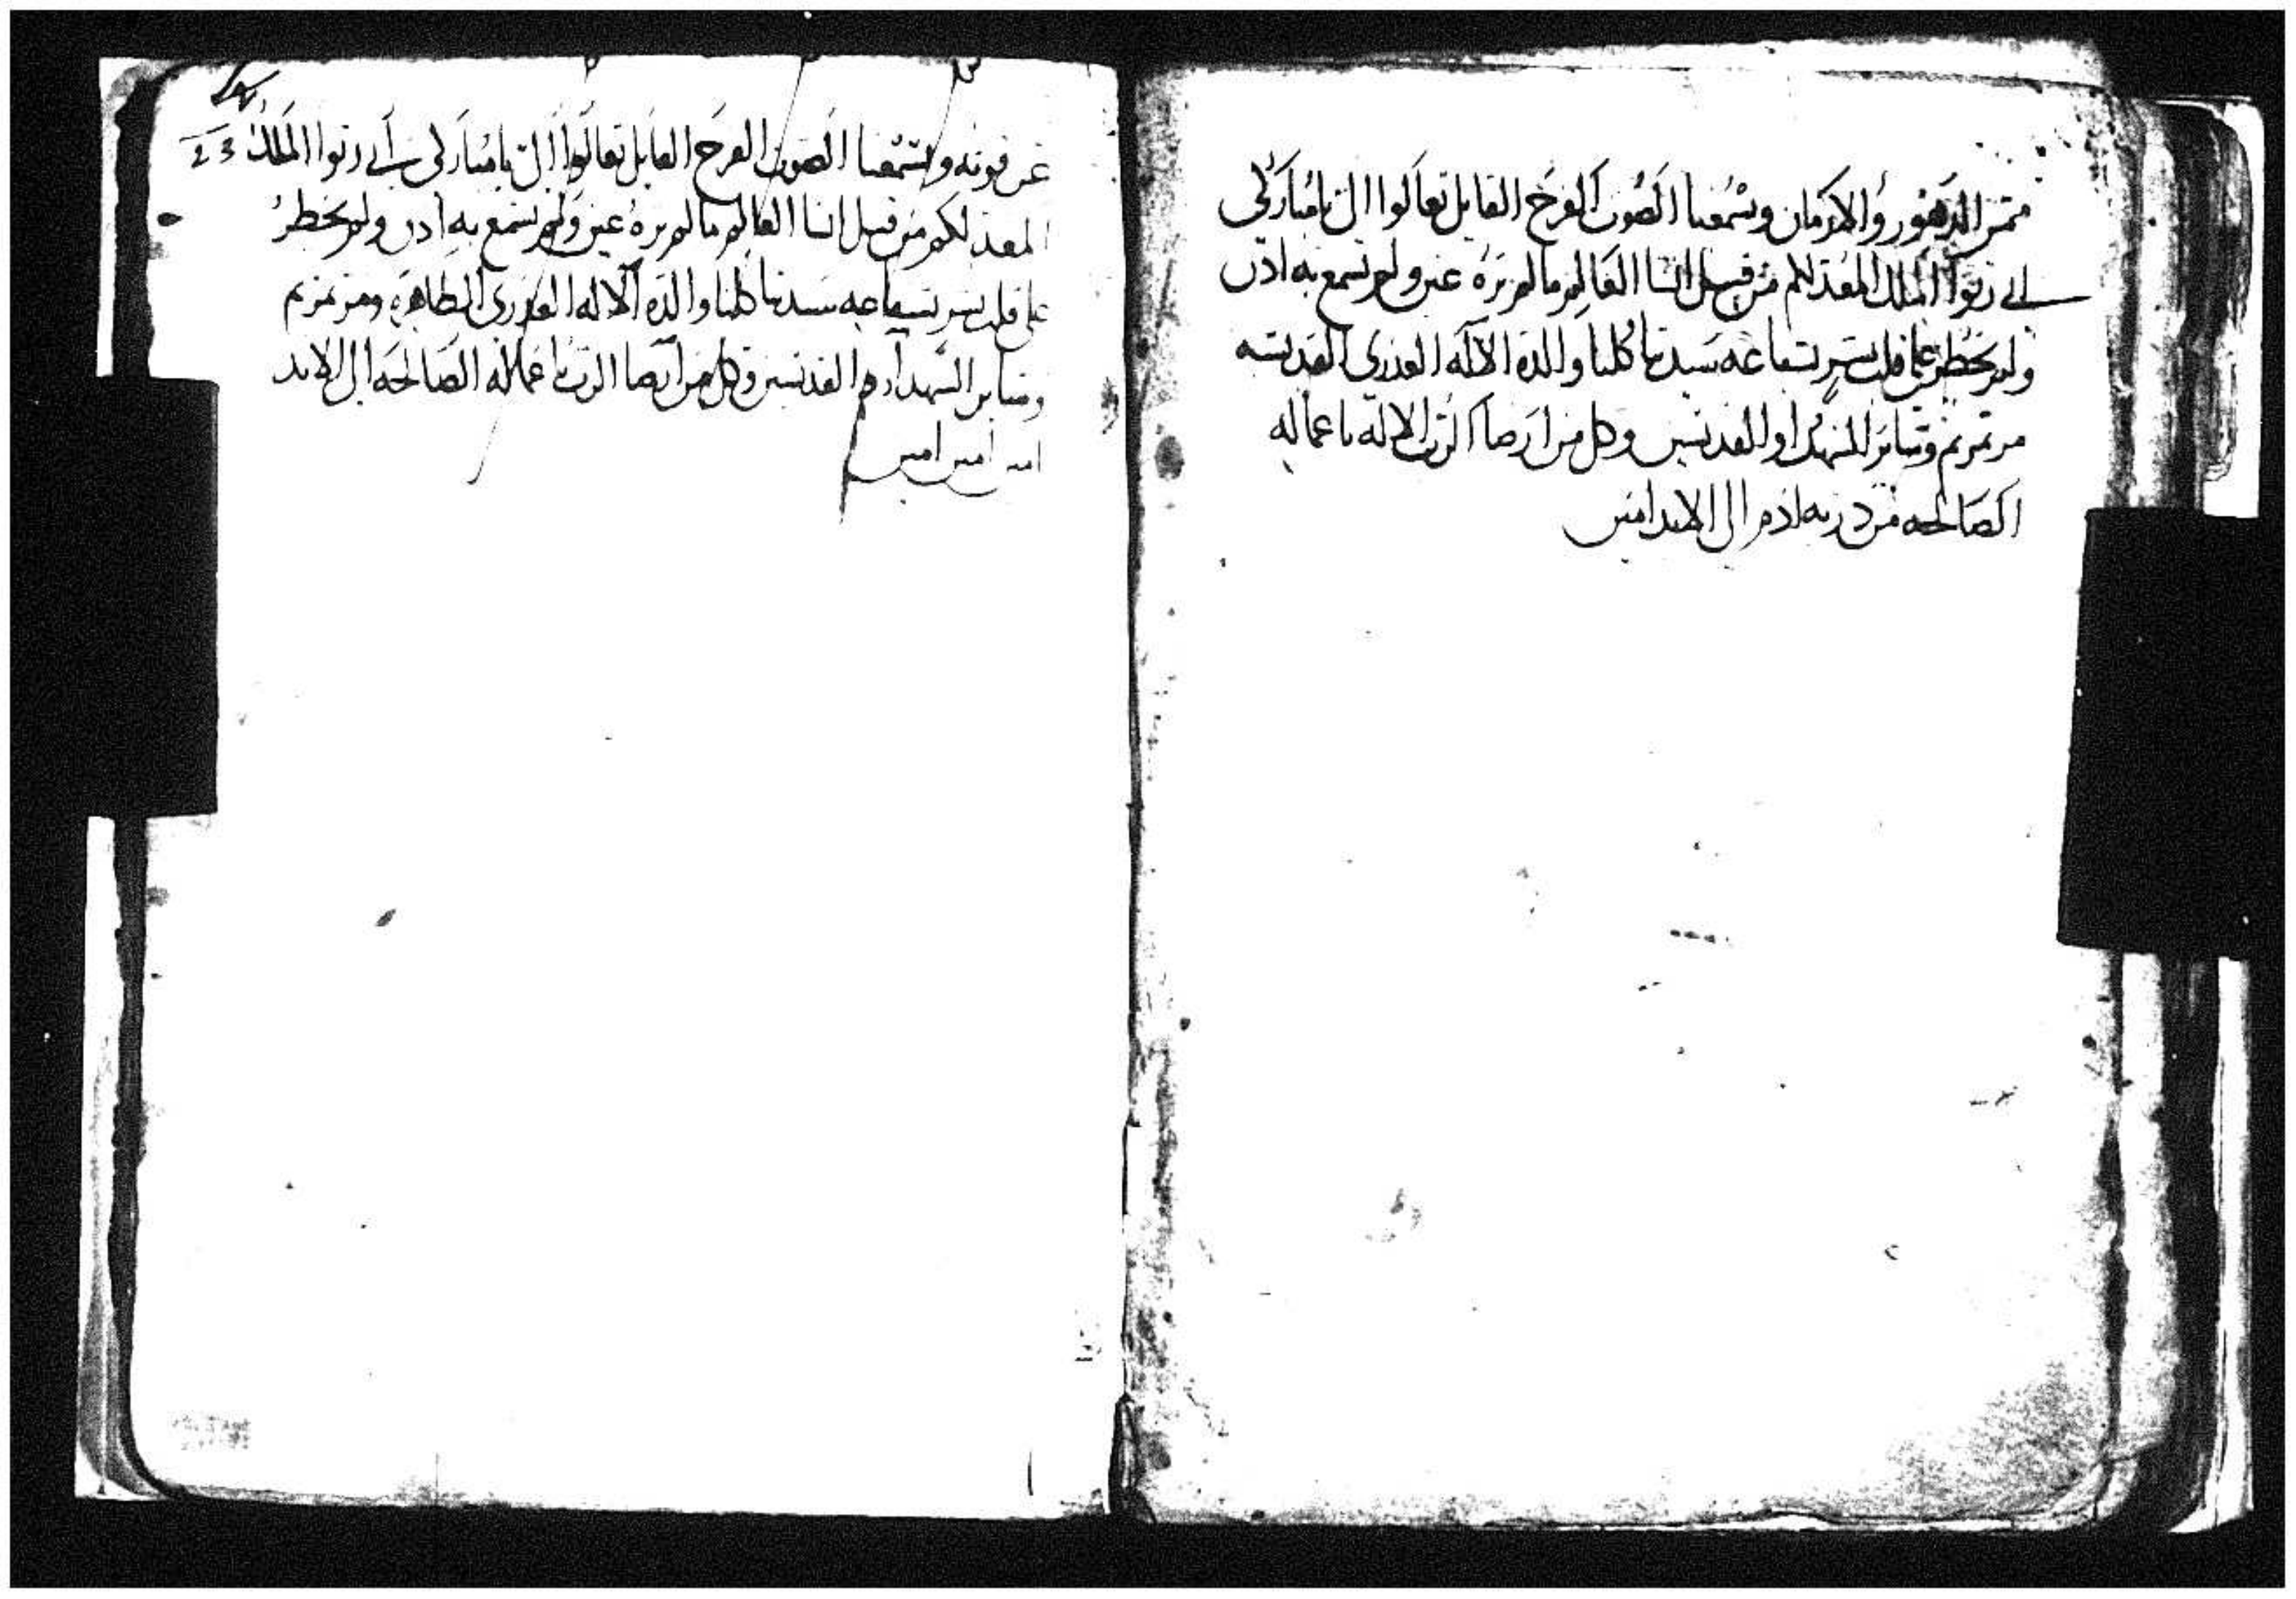 ممر الدهور والازمان ويسمعنا الصوت الفرح القايل تعالوا الى يا مباركي
ابي رتوا الملك المعد لكم من قبل انشا العالم ما لم تره عين ولم تسمع به اذن
ولم يخطر على قلب بشر بشفاعه سيدتنا كلنا والدة الاله العذرى القديسه
مرتمريم وسائر الشهدا والقديسين وكل من ارضا الرب الاله باعماله
الصالحه من دريه ادم الى الابد امين
عن قوته ويسمعنا الصوت الفرح القايل تعالوا الى يا مباركي ابي رتوا الملك
المعد لكم من قبل انشا العالم ما لم تره عين ولم تسمع به اذن ولم يخطر
على قلب بشر بشفاعه سيدتنا كلنا والدة الاله العذرى الطاهره مرتمريم
وسائر الشهدا والقديسين وكل من ارضا الرب باعماله الصالحه الى الابد
امين امين امين